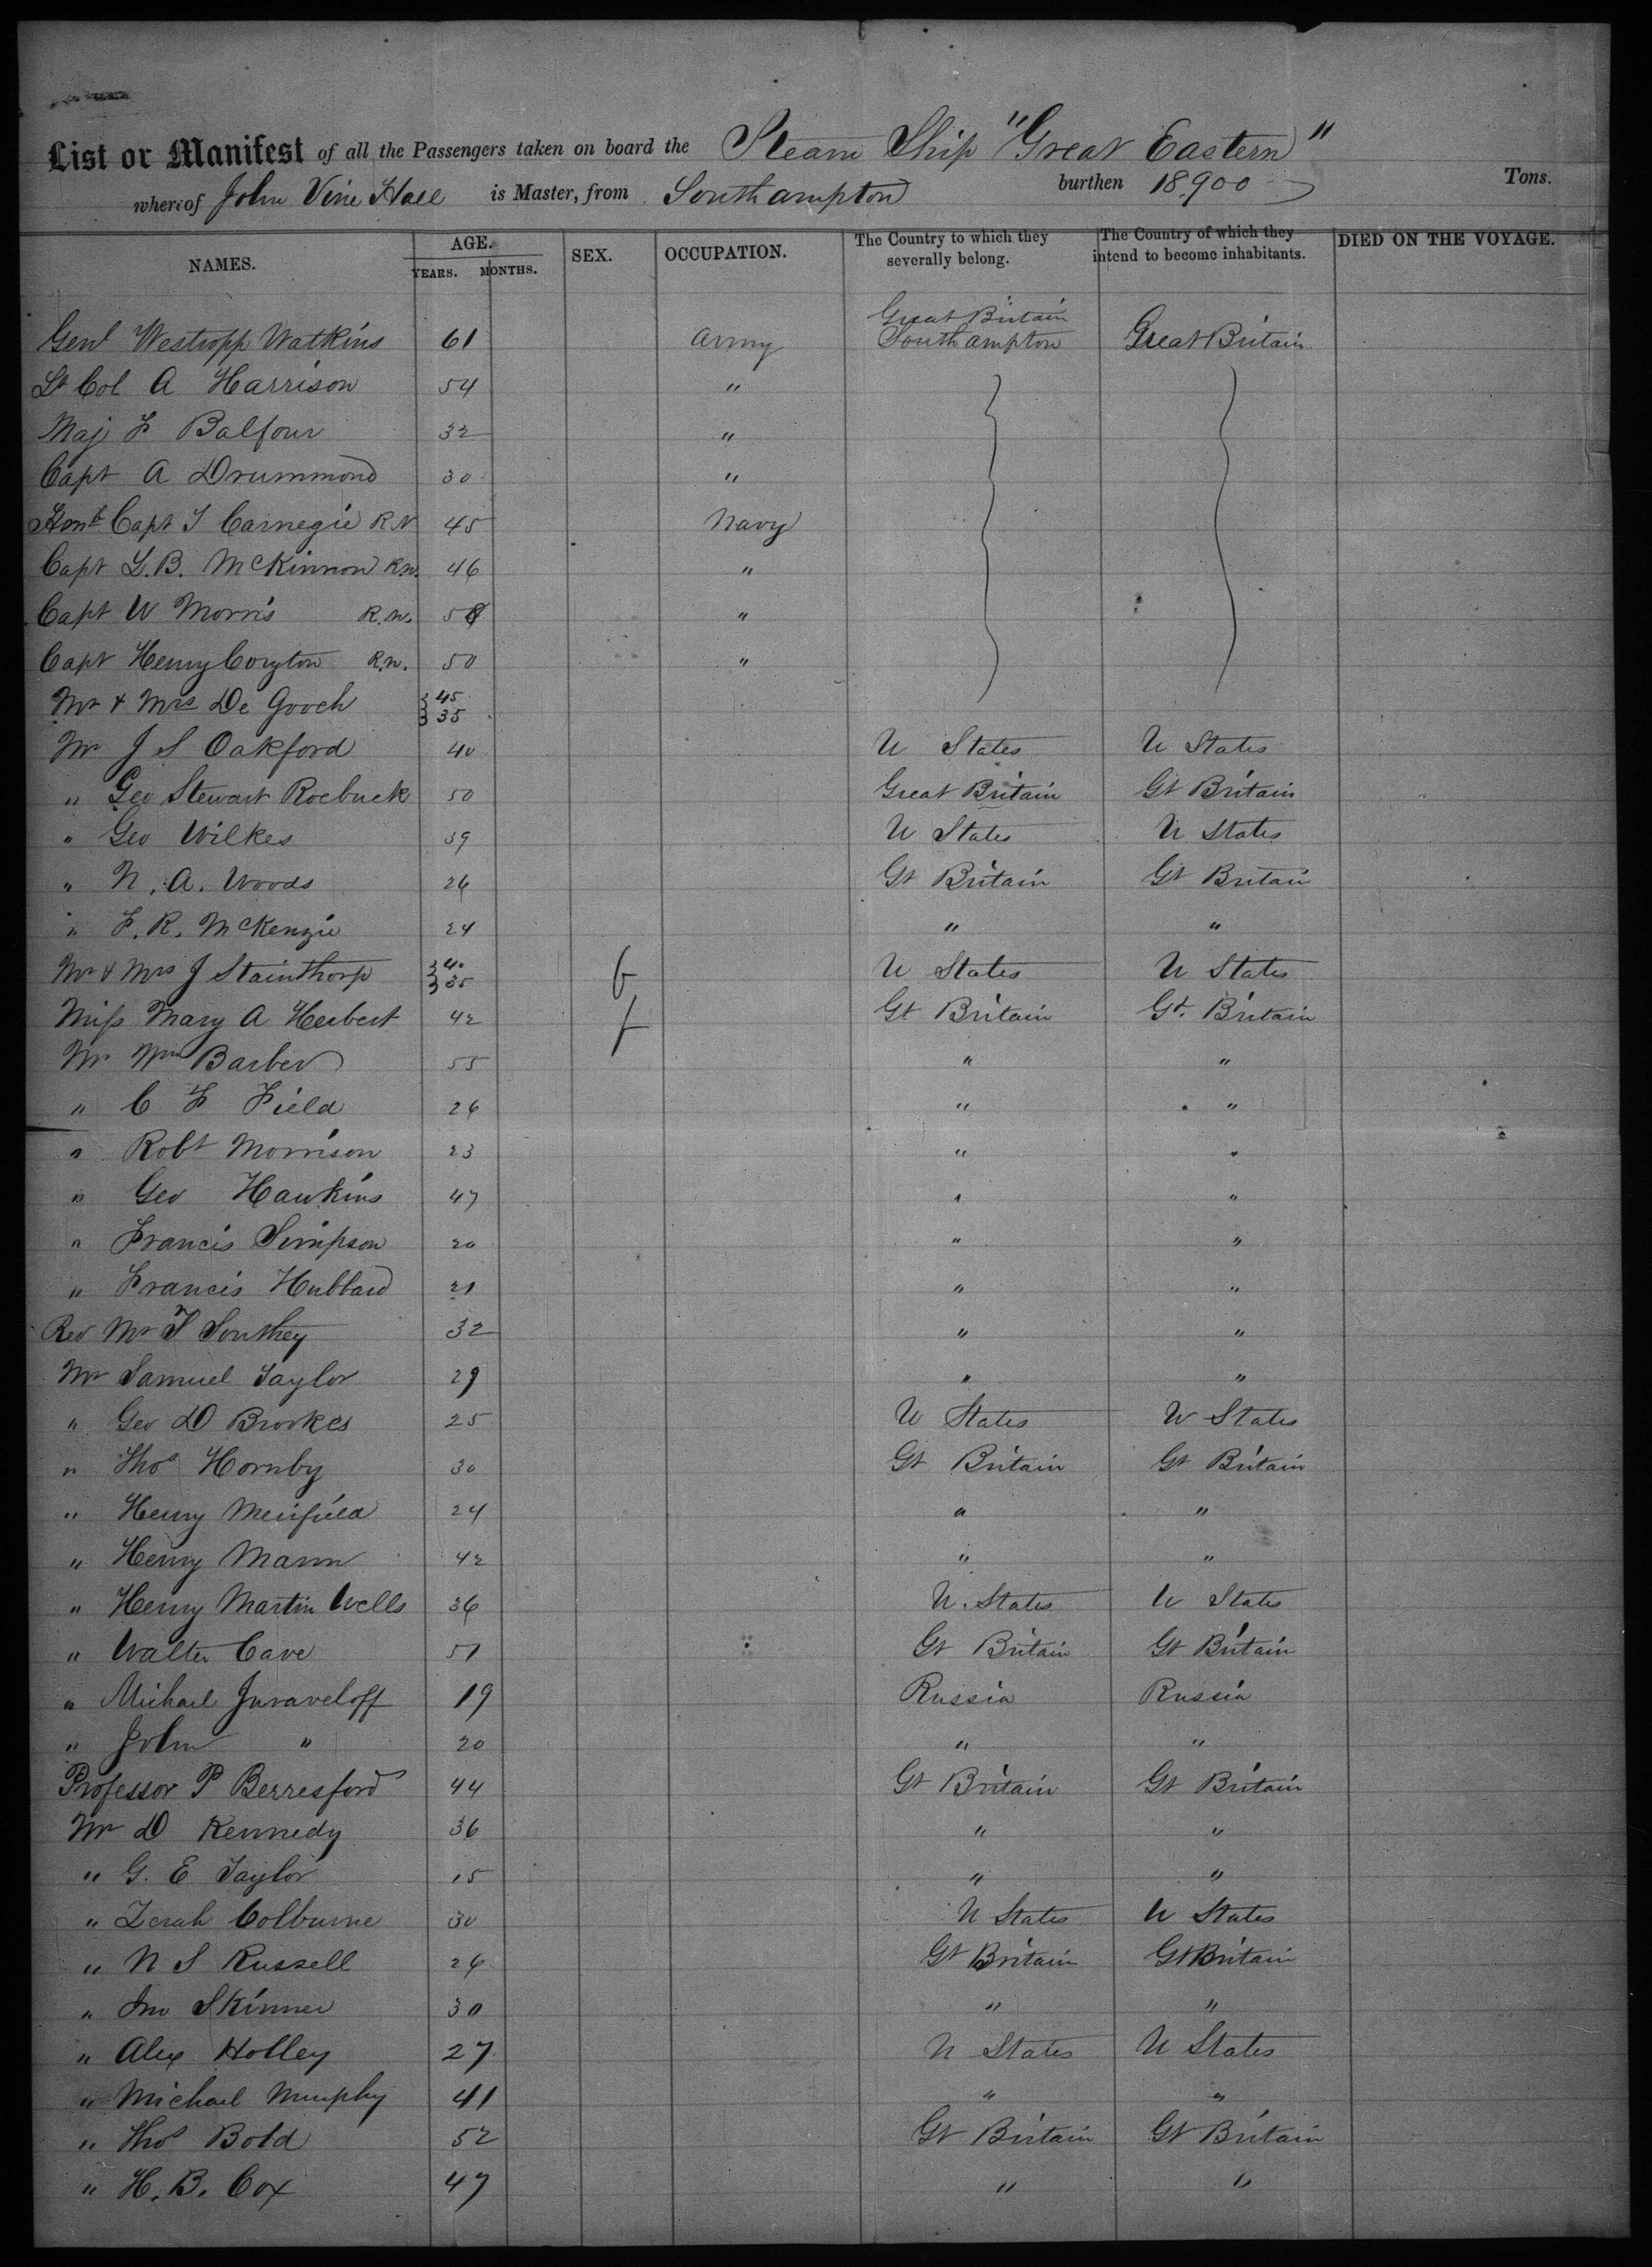 List or Manifest of all the Passengers taken on board the Steam Ship "Great Eastern"
whereof John Vine Hall is Master, from Southampton burthen 18,900 Tons.
NAMES. AGE. YEARS. MONTHS. SEX. OCCUPATION. The Country to which they severally belong. The Country of which they intend to become inhabitants. DIED ON THE VOYAGE.
Great Britain
Genl Westropp Watkins 61 Army Southampton Great Britain
Lt Col A Harrison 54 "
Maj F Balfour 32 "
Capt A Drummond 30 "
Honb Capt S Carnegie RN 45 Navy
Capt L.B. McKinnon R.N. 46 "
Capt W Morris R.N. "
Capt Henry Coryton R.N. 50 "
Mr & Mrs De Gooch 45 35
Mr J S Oakford 40 U States U States
" Geo Stewart Roebuck 50 Great Britain Gt Britain
" Geo Wilkes 39 U States U States
" N. A. Woods 26 Gt Britain Gt Britain
" F. R. McKenzie 24 " "
Mr & Mrs J Stainthorp 40 35 f U States U States
Miss Mary A Herbert 42 f Gt Britain Gt. Britain
Mr Wm Barber 55 " "
" C F Field 26 " "
" Robt Morrison 23 " "
" Geo Hawkins 47 " "
" Francis Simpson 20 " "
" Francis Hubbard 21 " "
Rev Mr T Southey 32 " "
Mr Samuel Taylor 29 " "
" Geo D Brookes 25 U States U States
" Thos Hornby 30 Gt Britain Gt Britain
" Henry Merifield 24 " "
" Henry Mann 42 " "
" Henry Martin Wells 36 U. States U States
" Walter Cave 51 Gt Britain Gt Britain
" Michael Juraveloff 19 Russia Russia
" John " 20 " "
Professor P Berresford 44 Gt Britain Gt Britain
Mr D Kennedy 36 " "
" G. E Taylor 15 " "
" Zerah Colburne 30 U States U States
" N S Russell 26 Gt Britain Gt Britain
" Jno Skinner 30 " "
" Alex Holley 27 U States U States
" Michael Murphy 41 " "
" Thos Bold 52 Gt Britain Gt Britain
" H. B. Cox 47 " "